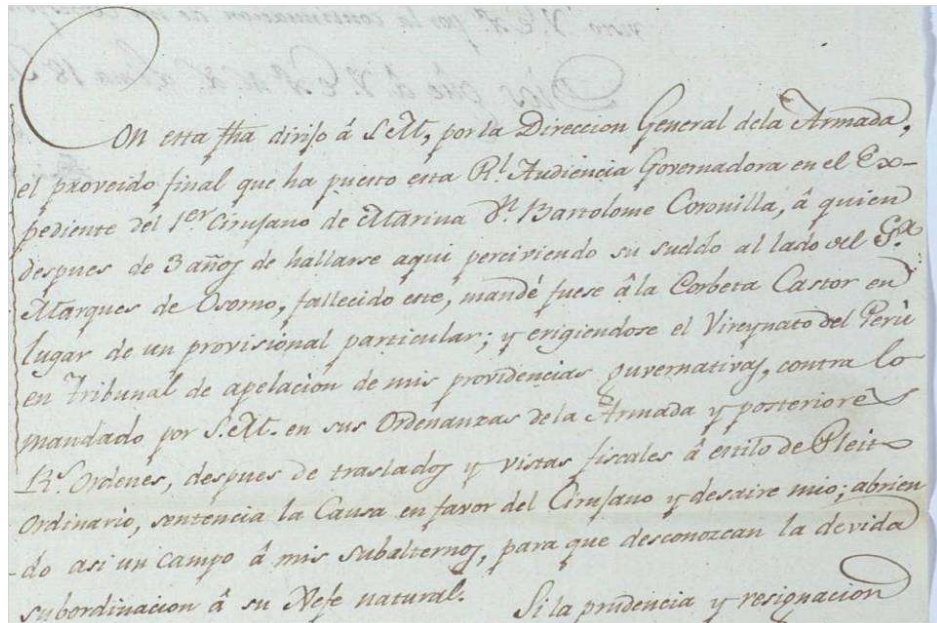 Con esta fha dirijo â S.M, por la Direccion General dela Armada,
el proveido final que ha puesto esta Rl. Audiencia Governadora en el Ex-
pediente del 1er. Cirujano de Marina Dn. Bartolome Coronilla, â quien
despues de 3 años de hallarse aqui perciviendo su sueldo al lado del Gral
Marques de Osorno, fallecido este, mandé fuese âla Corbeta Castor en
lugar de un provisional particular; y erigiendose el Vireynato del Perù
en Tribunal de apelacion de mis providencias guvernativas, contra lo
mandado por S.M. en sus Ordenanzas dela Armada y posteriores
Rs. Ordenes, despues de traslados y vistas fiscales â estilo de Pleito
Ordinario, sentencia la Causa en favor del Cirujano y desaire mio; abrien
-do asi un campo â mis subalternos, para que desconozcan la devida
subordinacion â su Xefe natural. Si la prudencia y resignacion